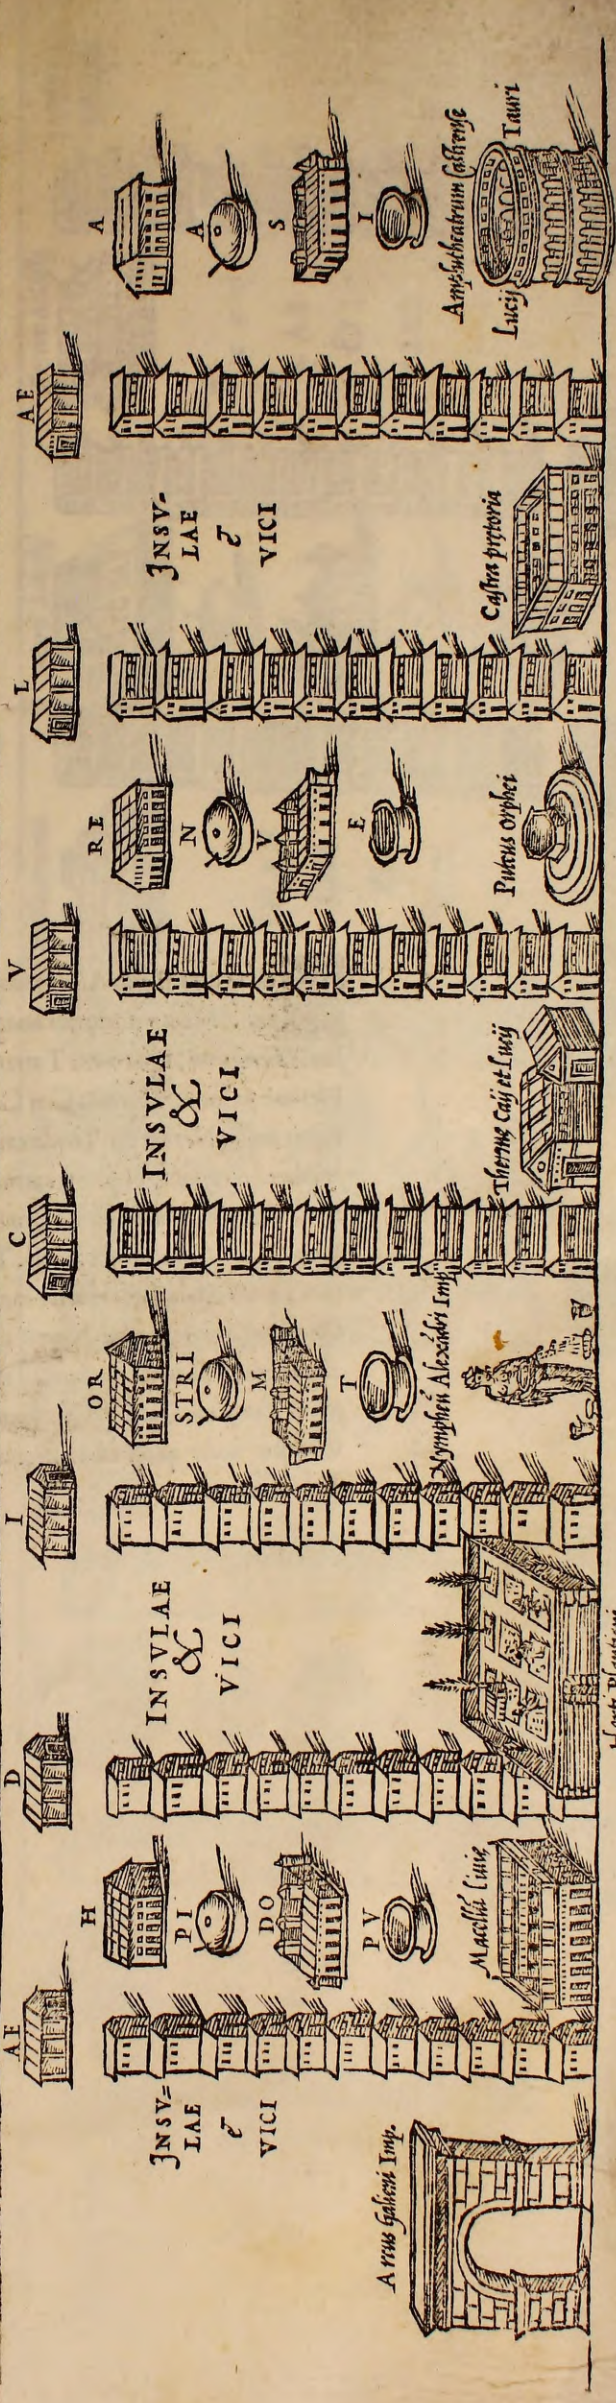 AE D I C V L AE
H OR RE A
PI STRI N A
DO M V S
PV T E I
JNSV=
LAE
&
VICI
INSVLAE
&
VICI
INSVLAE
&
VICI
JNSV-
LAE
&
VICI
Arcus Galieni Imp.
Macellũ Liuię
Nympheũ Alexãdri Imp
Thermę Caij et Lucij
Puteus Orphei
Castra prętoria
Amphitheatrum Castrense
Lucij Tauri